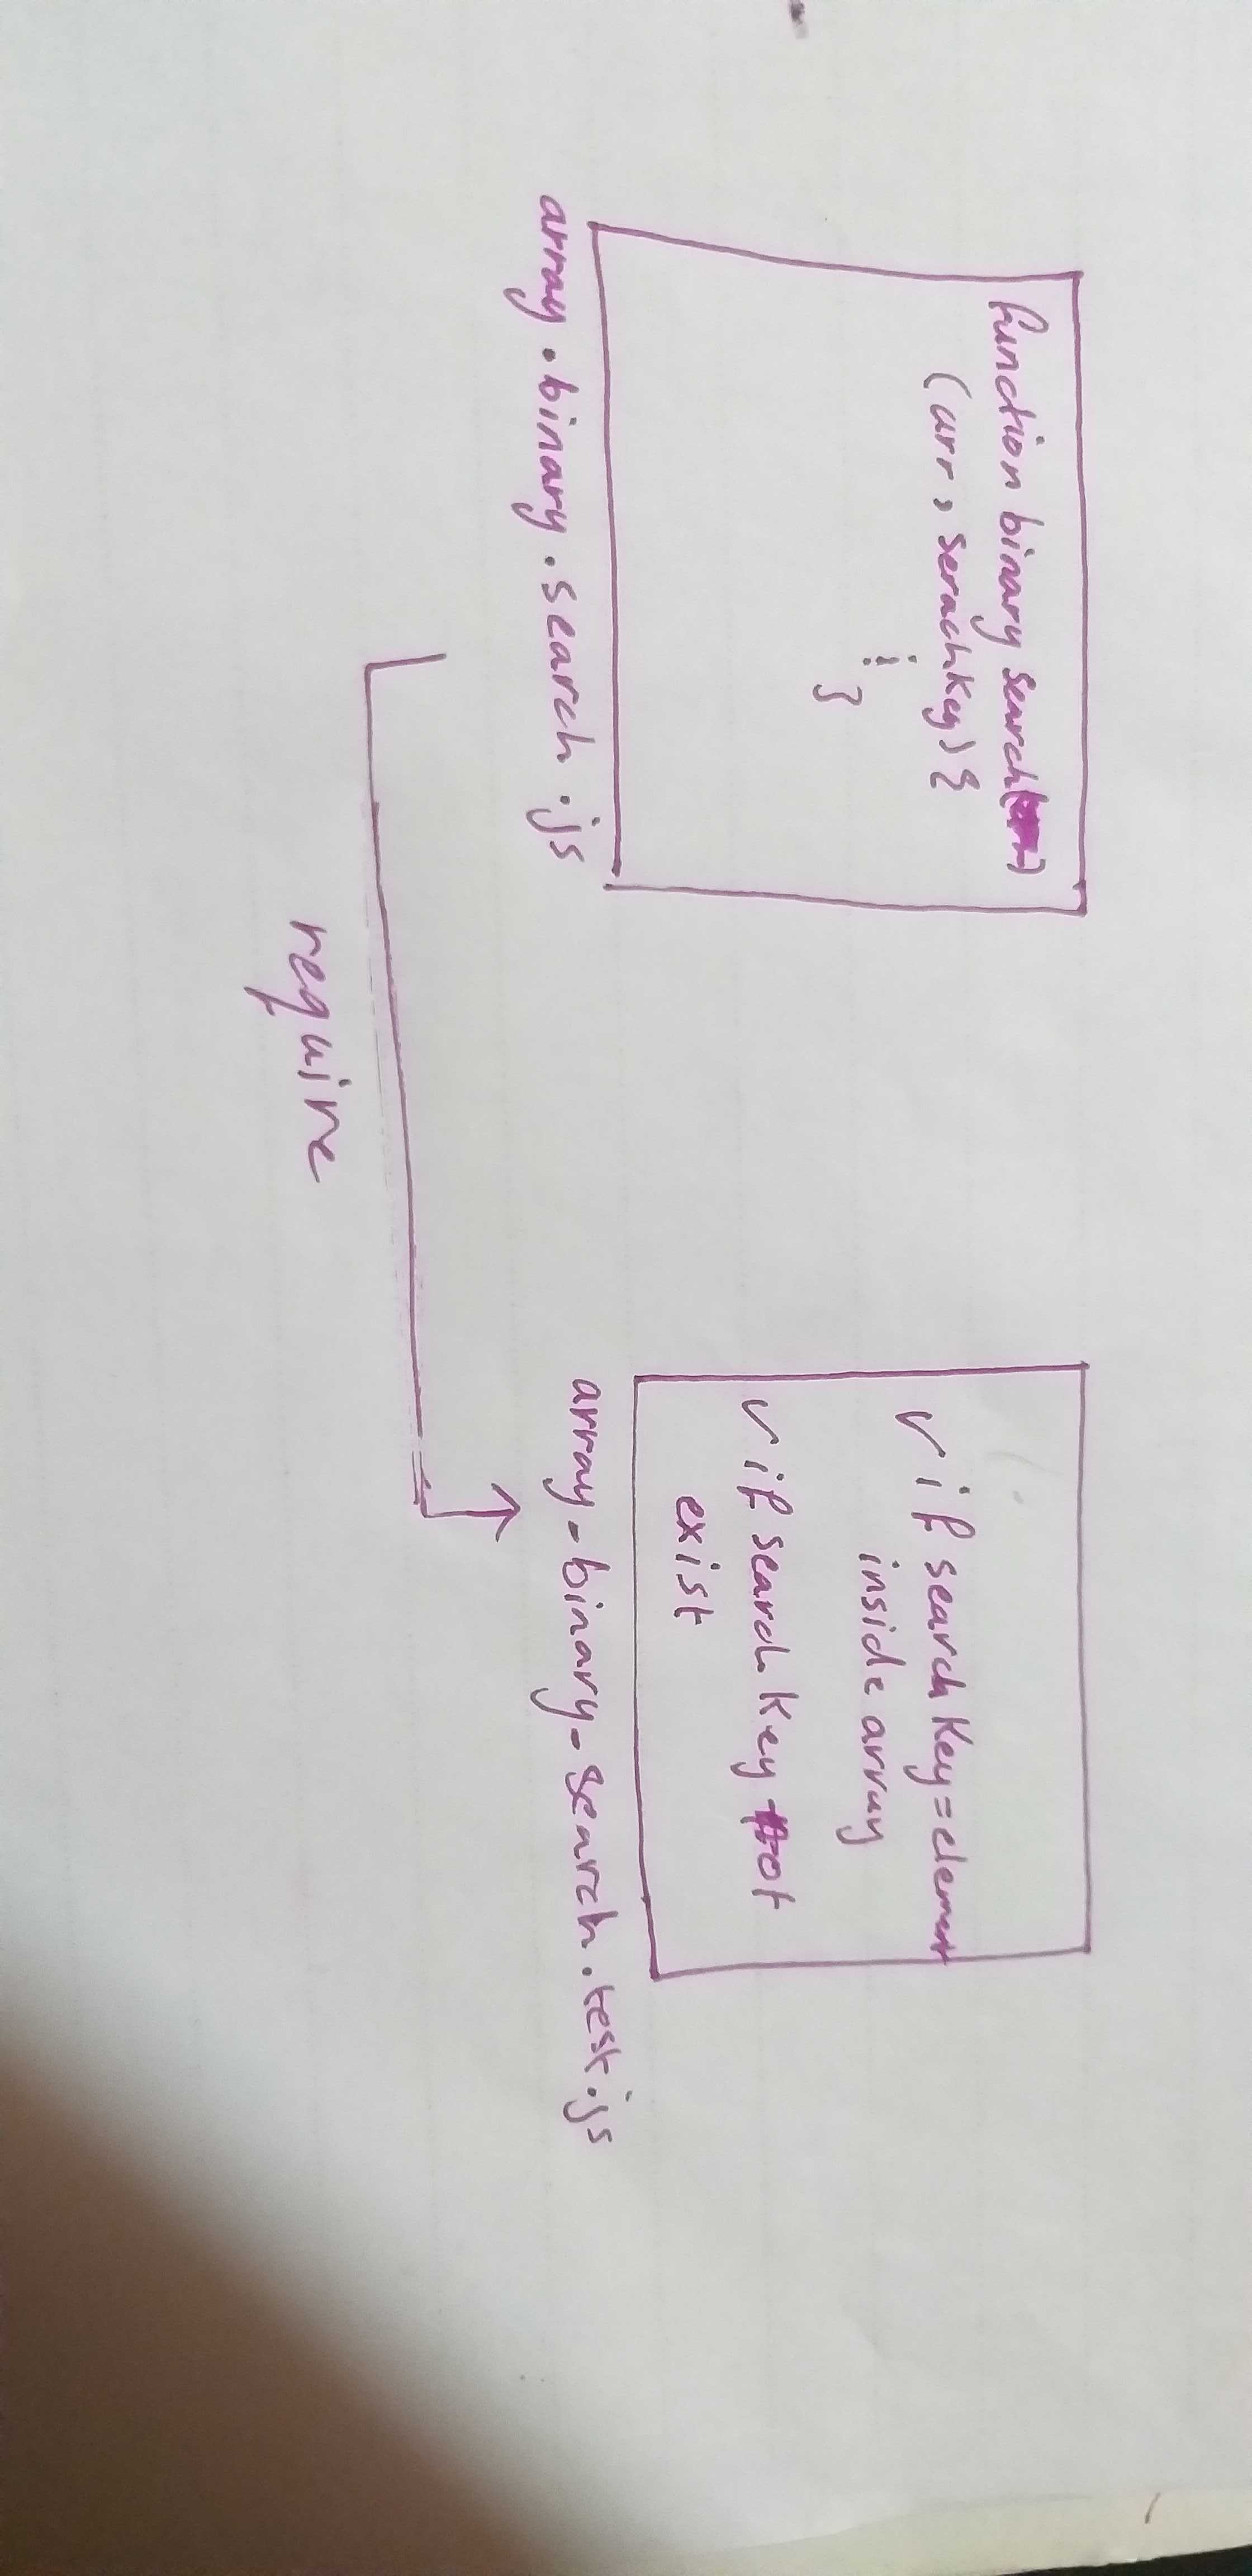 function binary search
(arr, serachKey) {
:
}
array.binary.search.js
√ if searchKey = element
inside array
√ if searchKey not
exist
array-binary-search.test.js
require